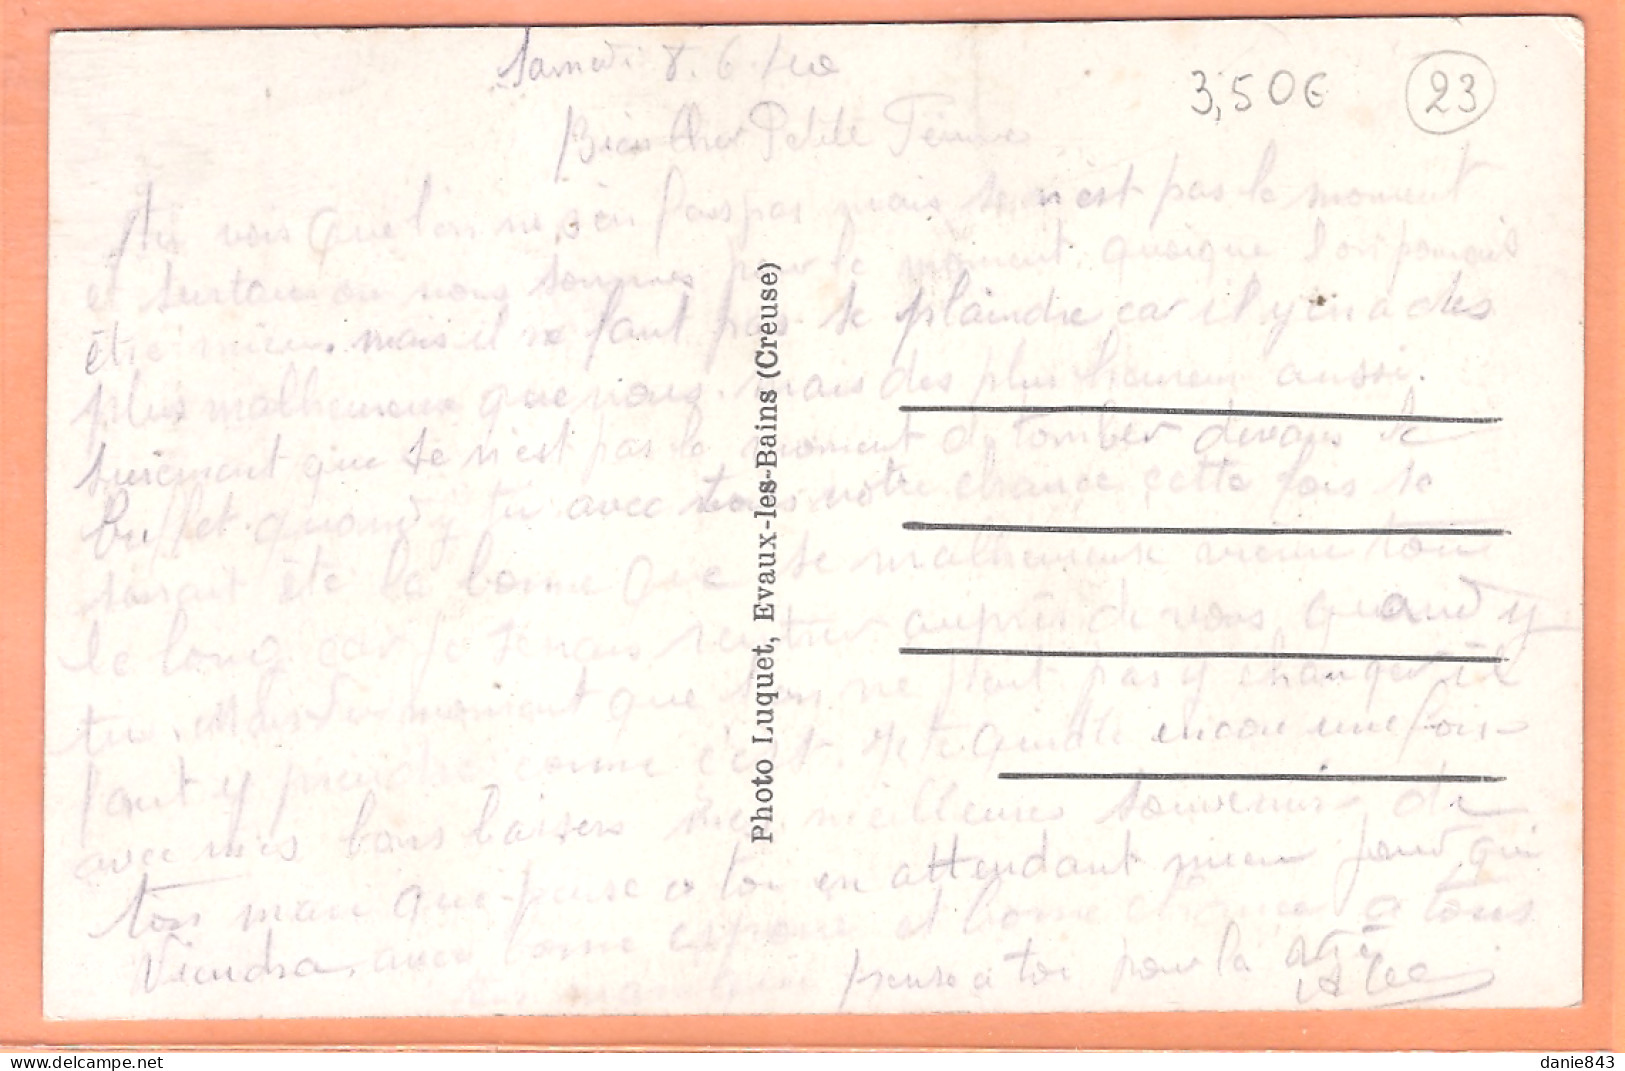 Samedi 8.6.40
3,50€
23
Bien Cher Petite Femme
tu vois que l'on ne s'en fais pas mais se n'est pas le moment
et surtout ou nous sommes pour le moment. quoique l'on pourrais
être mieux. mais il ne faut pas se plaindre car il y en a des
plus malheureux que nous. mais des plus heureux aussi.
surement que se n'est pas le moment de tomber devans le
buffet. quand y tu avec tous notre chance cette fois se
serait été la bonne que se malheureuse vienne tout
le long car je serais rentrer auprès de vous quand y
tu. du moment que l'on ne peut pas y changer il
faut y prendre comme c'est. Je te quitte encore une fois
avec mes bons baisers mes meilleures souvenirs de
ton mari que pense a toi en attendant mieux jour qui
viendra. avec bonne espoire et bonne chance a tous
ton mari qui pense a toi pour la vie
Photo Luquet, Evaux-les-Bains (Creuse)
danie843